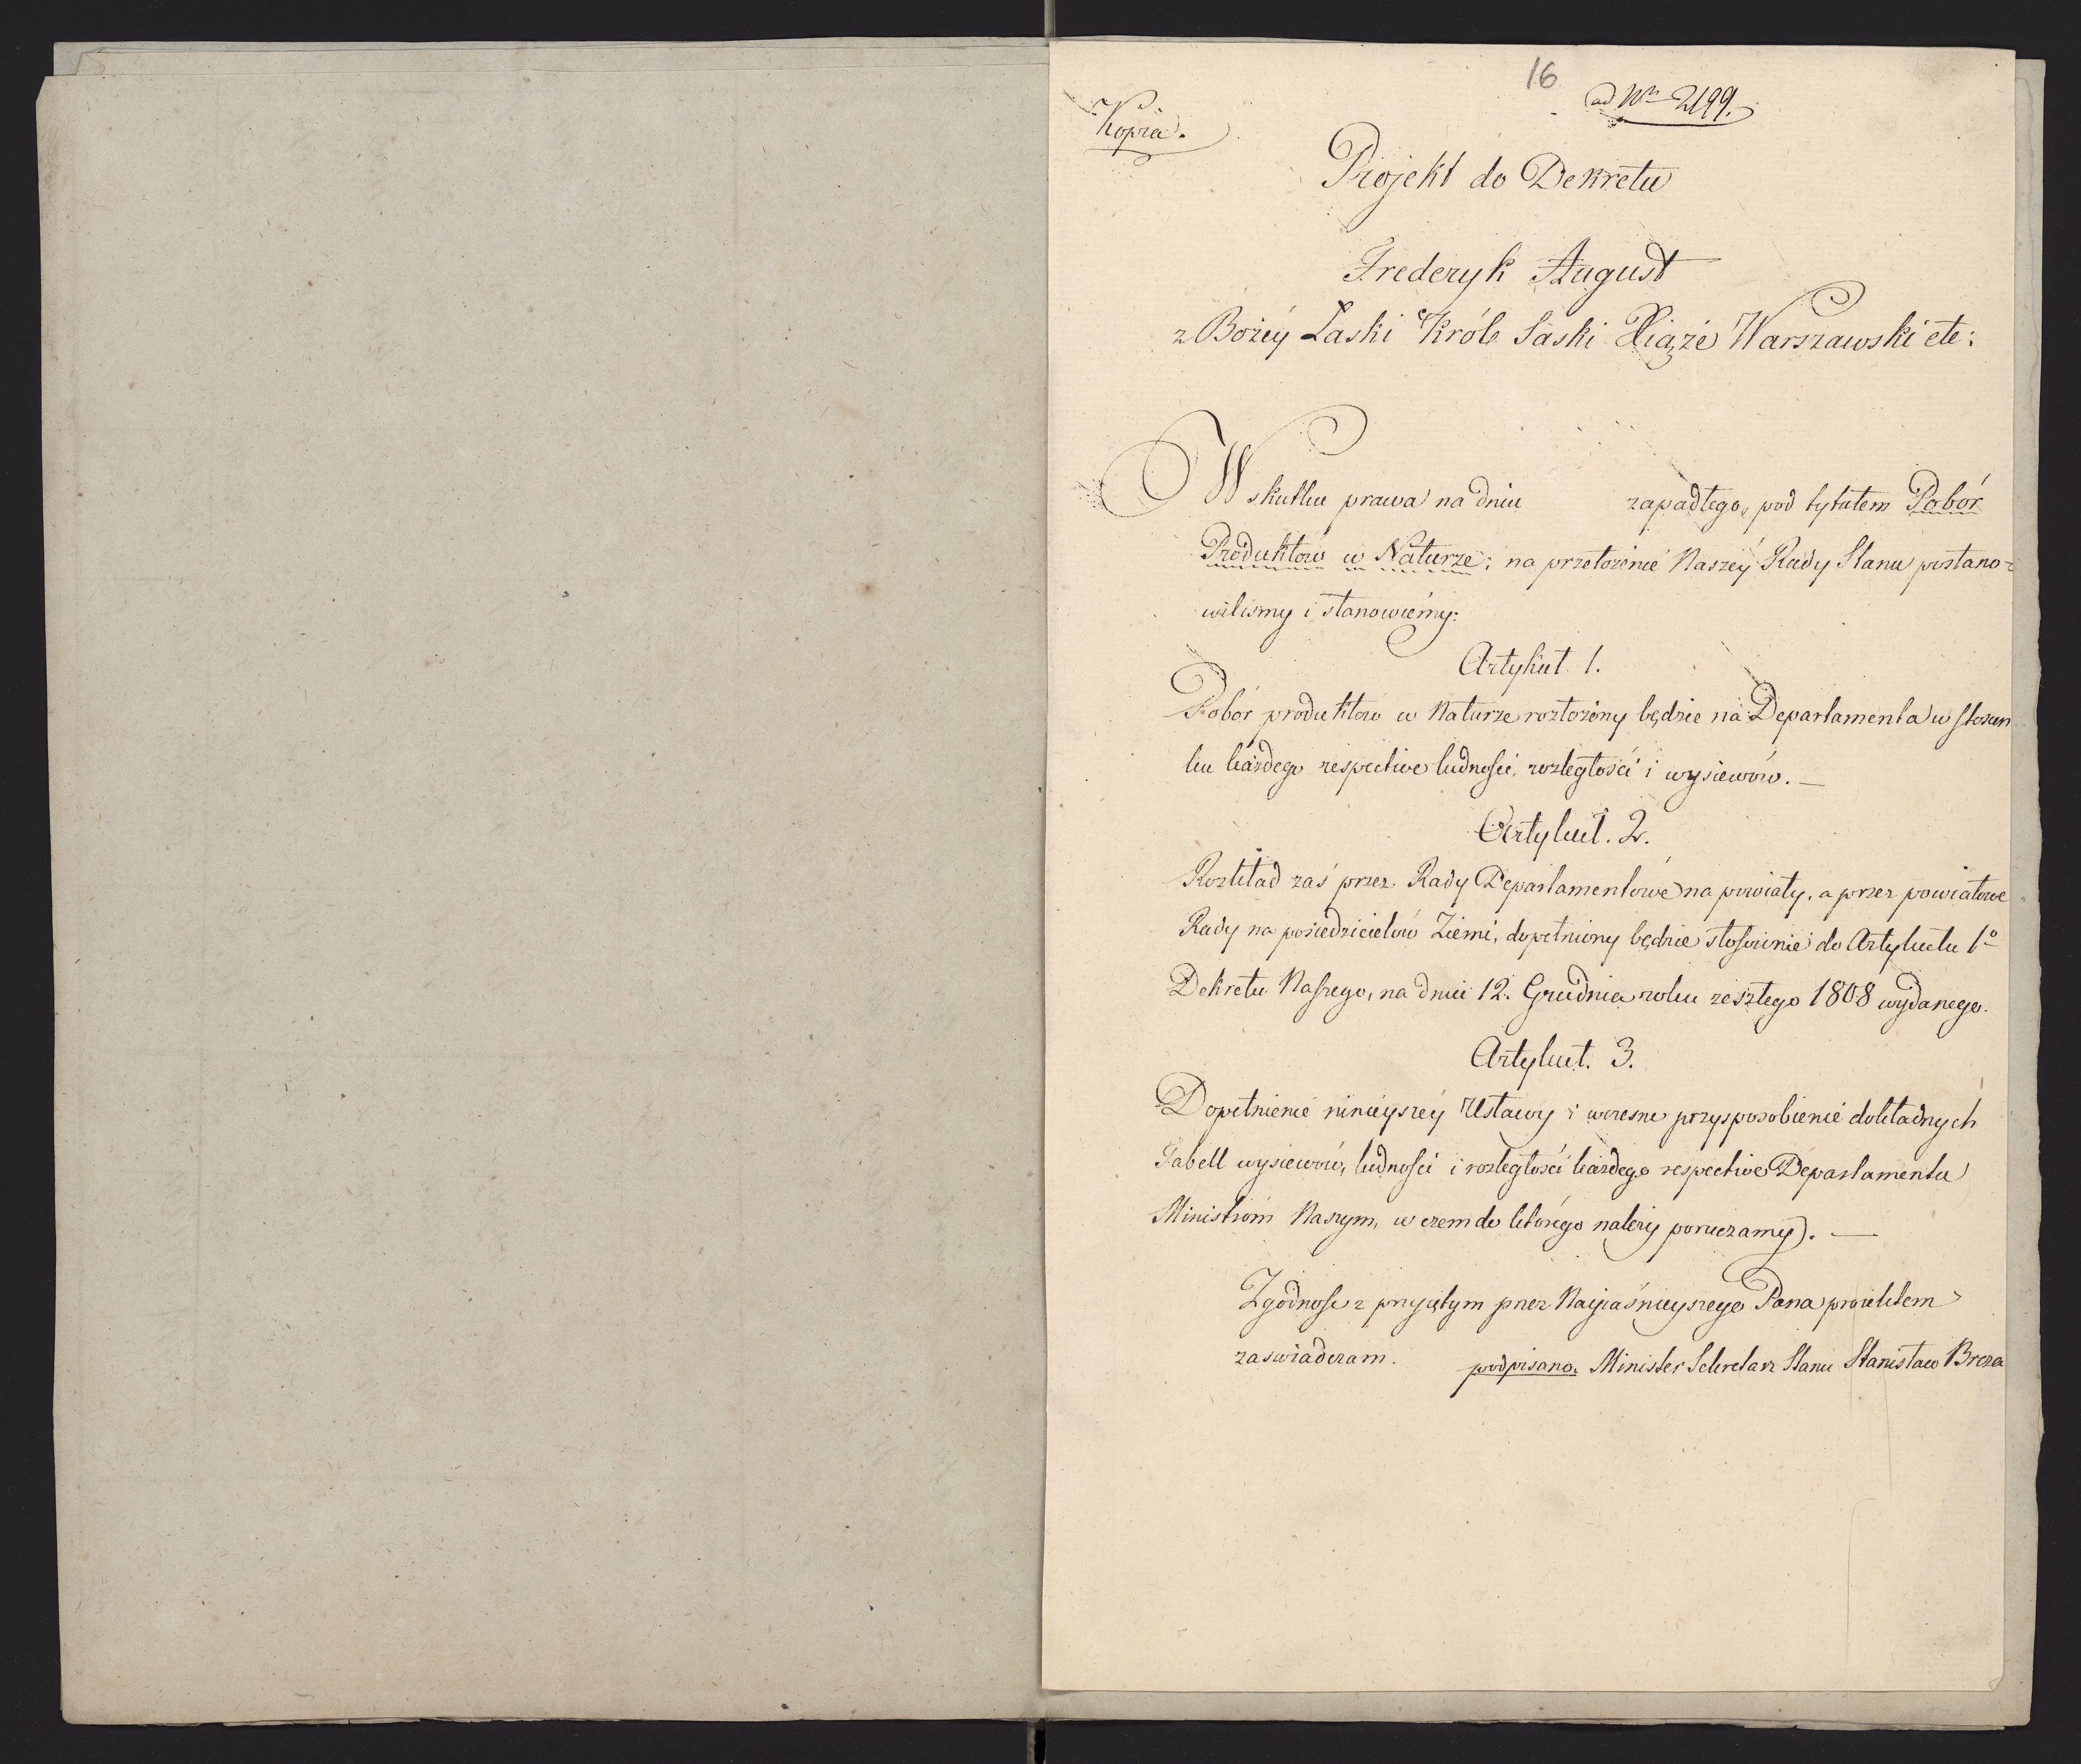 16
ad Nrm 2199.
Kopia.
Projekt do Dekretu
Frederyk August
z Bożéy Łaski Król Saski Xiąże Warszawski etc:
W skutku prawa na dniu zapadłego, pod tytułem Pobór
Produktow w Naturze; na przełożenie Naszéy Rady Stanu postano-
wiliśmy i stanowiemy:
Artykuł 1.
Pobór produktow w Naturze rozłożony będzie na Departamenta w stosun
ku każdego respective ludności, rozległości i wysiewów. —
Artykuł. 2.
Rozkład zaś przez Rady Departamentowe na powiaty, a przez powiatowe
Rady na posiedzicielów Ziemi, dopełniony będzie stosownie do Artykułu 1º
Dekretu Naszego, na dniu 12. Grudnia roku zeszłego 1808 wydanego.
Artykuł. 3.
Dopełnienie ninieyszéy Ustawy i wczesne przysposobienie dokładnych
Tabell wysiewów, ludności i rozległości każdego respective Departamentu
Ministróm Naszym, w czem do którego należy poruczamy. —
Zgodność z przyjętym przez Nayjaśnieyszego Pana proiektem
zaswiadczam. podpisano. Minister Sekretarz Stanu Stanisław Breza